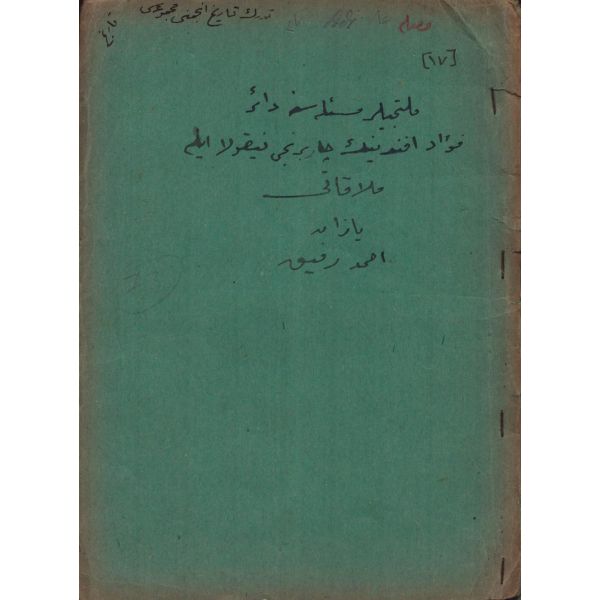 تورك تاريخ انجمنى مجموعه سى
[١٧]
ملتجيلر مسئله سنه دائر
فؤاد افندينك چار برنجى نيقولا ايله
ملاقاتى
يازان
احمد رفيق